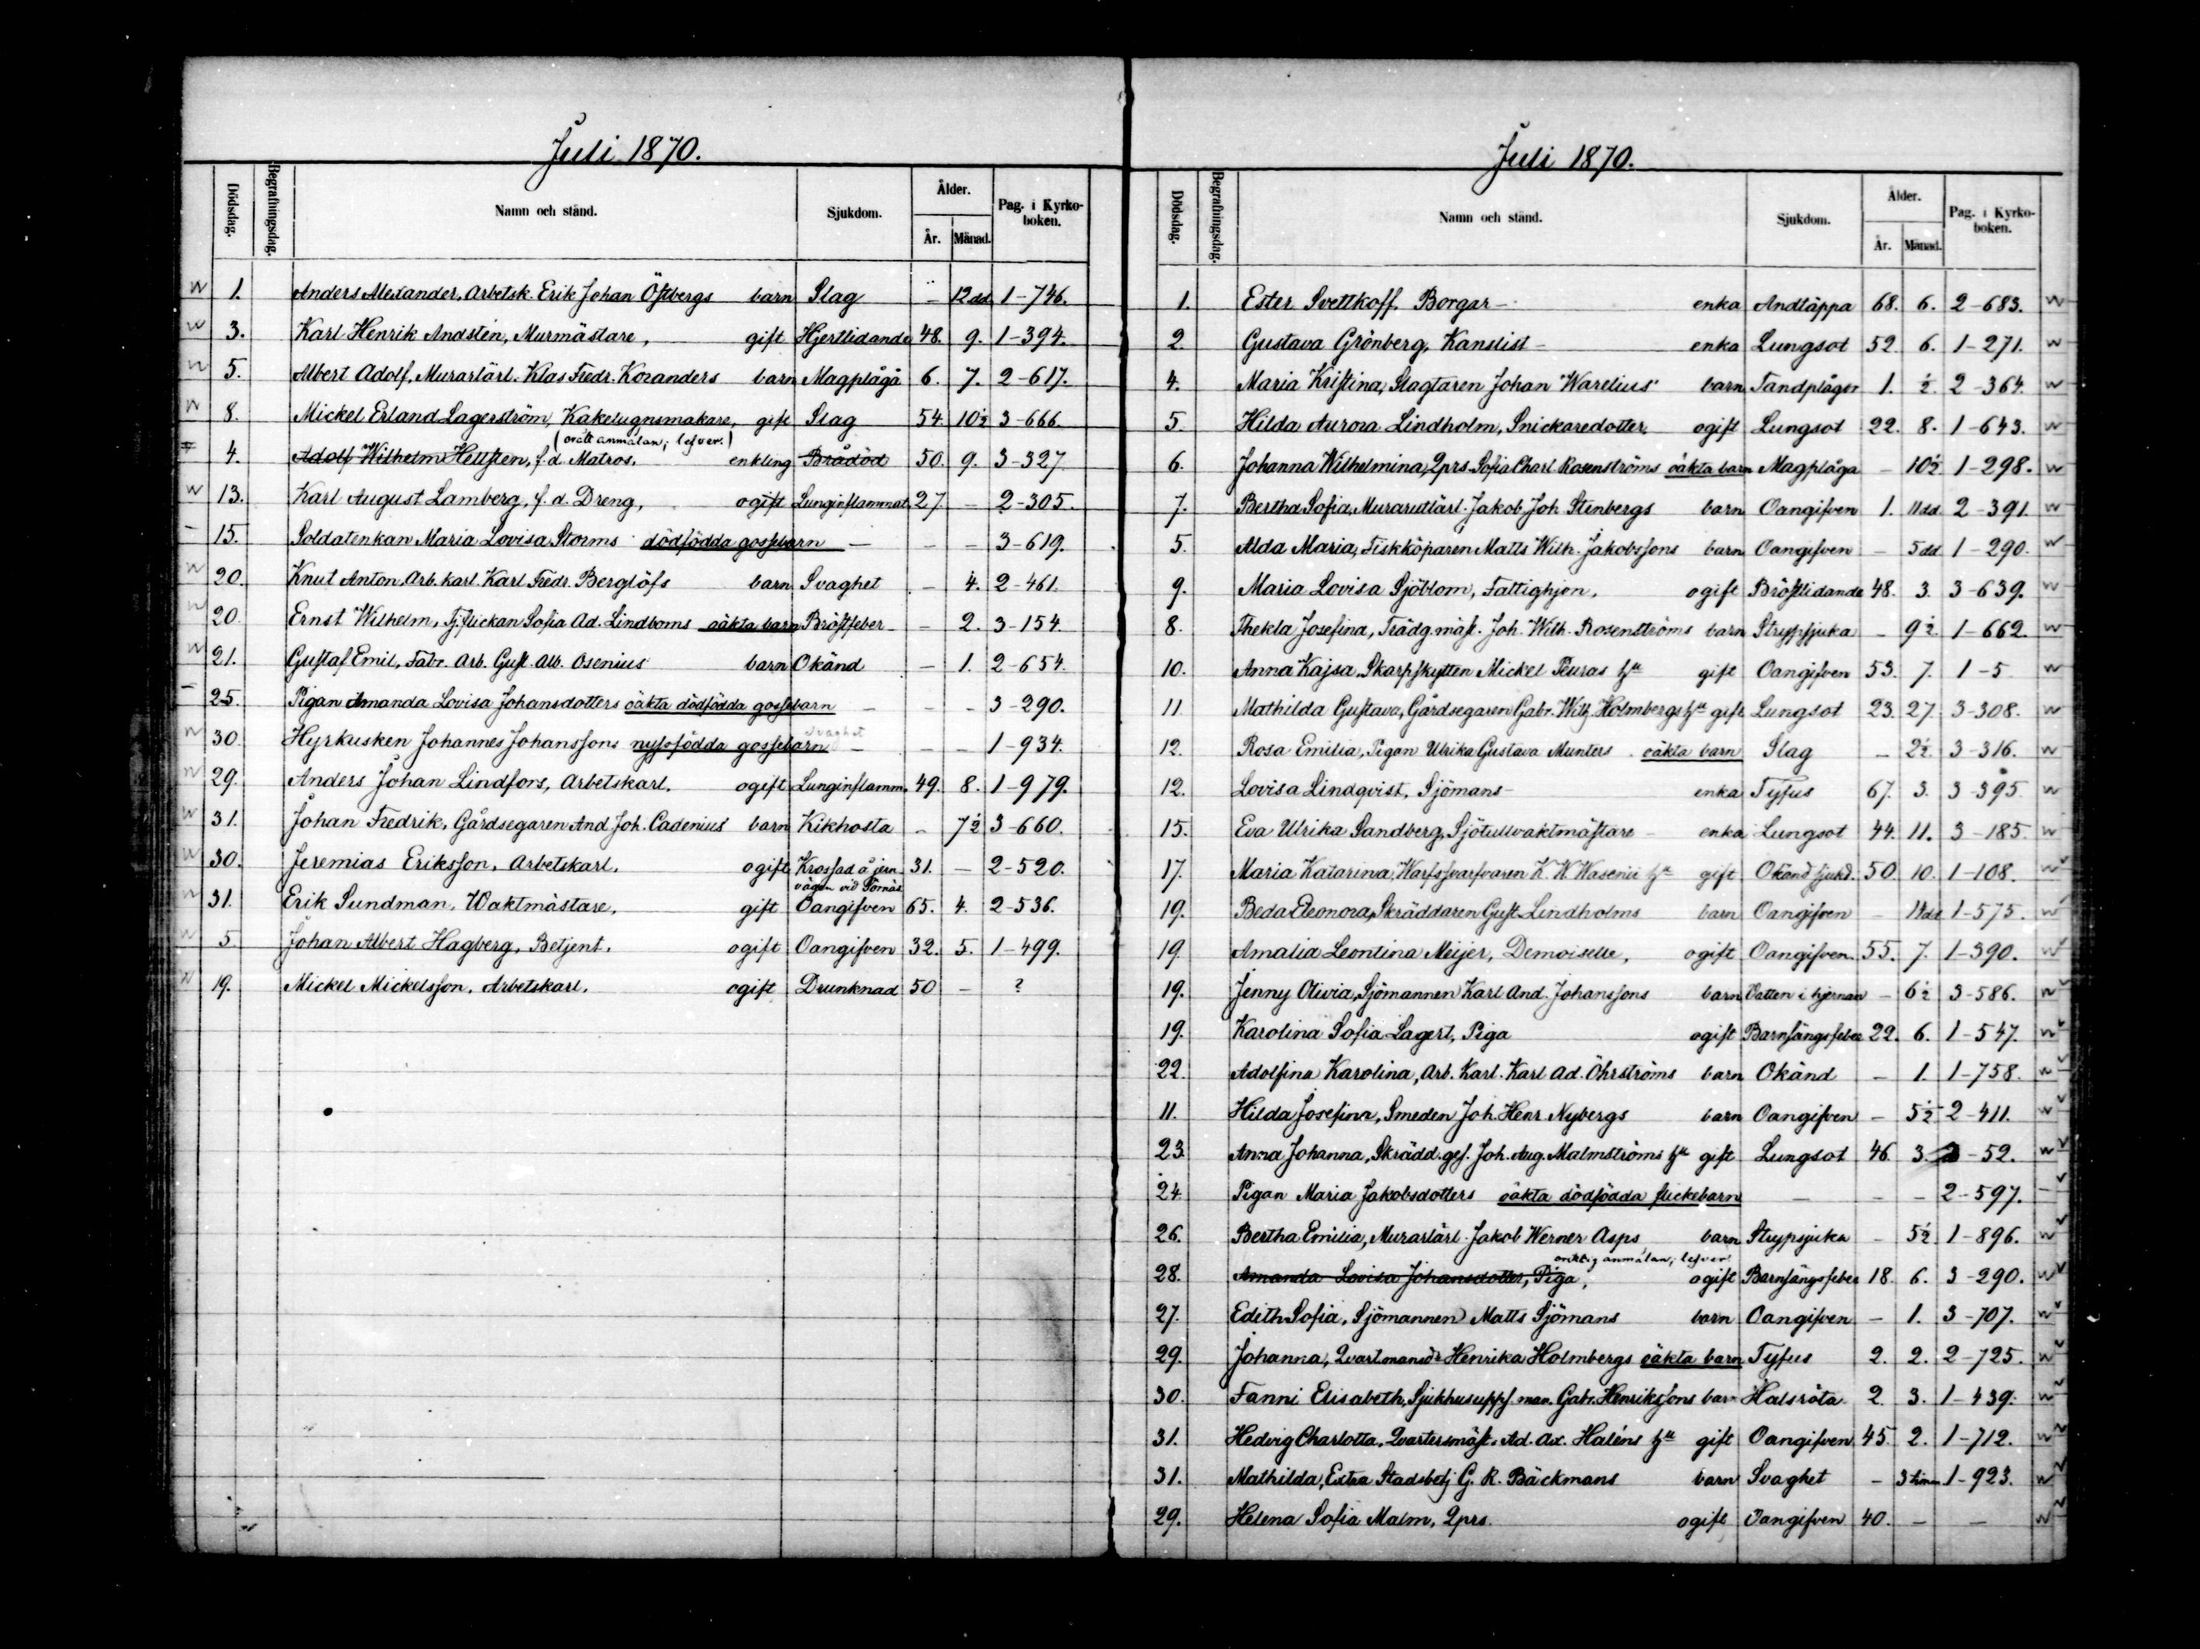 Juli 1870.
Dödsdag. Begrafningsdag. Namn och stånd. Sjukdom. Ålder. År. Månad. Pag. i Kyrkoboken.
1. Anders Alexander, Arbetsk. Erik Johan Östbergs barn Slag – 12 dd. 1-746.
3. Karl Henrik Andstén, Murmästare, gift Hjertlidande 48. 9. 1-394.
5. Albert Adolf, Murarlärl. Klas Fredr. Koranders barn Magplågå 6. 7. 2-617.
8. Mickel Erland Lagerström, Kakelugnsmakare, gift Slag 54. 10½ 3-666.
(orätt anmälan; lefver.)
4. Adolf Wilhelm Hellsten, f.d. Matros. enkling Brådöd 50. 9. 3-327
13. Karl August Lamberg, f.d. Dreng, ogift Lunginflammat. 27. – 2-305.
15. Soldatenkan Maria Lovisa Storms dödfödda gossebarn – – – 3-619.
20. Knut Anton, Arb. karl. Karl Fredr. Berglöfs barn Svaghet – 4. 2-461.
20. Ernst Wilhelm, Tj. flickan Sofia Ad. Lindboms oäkta barn Bröstfeber – 2. 3-154.
21. Gustaf Emil, Fabr. Arb. Gust. Alb. Osenius barn Okänd – 1. 2-654.
25. Pigan Amanda Lovisa Johansdotters oäkta dödfödda gossebarn – – – 3-290.
30. Hyrkusken Johannes Johanssons nyssfödda gossebarn svaghet – – – 1-934.
29. Anders Johan Lindfors, Arbetskarl. ogift Lunginflamm. 49. 8. 1-979.
31. Johan Fredrik, Gårdsegaren And. Joh. Cadenius barn Kikhosta – 7½ 3-660.
30. Jeremias Eriksson, Arbetskarl. ogift Krossad å jern- 31. – 2-520.
vägen vid Sörnäs
31. Erik Sundman, Waktmästare, gift Oangifven 65. 4. 2-536.
5. Johan Albert Hagberg, Betjent. ogift Oangifven 32. 5. 1-499.
19. Mickel Mickelsson, Arbetskarl. ogift Drunknad 50 – ?
Juli 1870.
Dödsdag. Begrafningsdag. Namn och stånd. Sjukdom. Ålder. År. Månad. Pag. i Kyrkoboken.
1. Ester Svettkoff, Borgar- enka Andtäppa 68. 6. 2-683.
2. Gustava Grönberg, Kanslist- enka Lungsot 52. 6. 1-271.
4. Maria Kristina, Slagtaren Johan Warelius barn Tandplågor 1. ½. 2-364.
5. Hilda Aurora Lindholm, Snickaredotter. ogift Lungsot 22. 8. 1-643.
6. Johanna Wilhelmina, Qprs. Sofia Charl. Rosenströms oäkta barn Magplåga – 10½ 1-298.
7. Bertha Sofia, Murarutlärl. Jakob Joh. Stenbergs barn Oangifven 1. 11 dd. 2-391.
5. Alda Maria, Fiskköparen Matts Wilh. Jakobssons barn Oangifven – 5 dd. 1-290.
9. Maria Lovisa Sjöblom, Fattighjon, ogift Bröstlidande 48. 3. 3-639.
8. Thekla Josefina, Trädg. mäst. Joh. Wilh. Rosenströms barn Strypsjuka – 9½. 1-662.
10. Anna Kajsa, Skarpskytten Mickel Peuras hu gift Oangifven 53. 7. 1-5
11. Mathilda Gustava, Gårdsegaren Gabr. Wilh. Holmbergs hu gift Lungsot 23. 27. 3-308.
12. Rosa Emilia, Pigan Ulrika Gustava Munters oäkta barn Slag – 2½. 3-316.
12. Lovisa Lindqvist, Sjömans- enka Tyfus 67. 3. 3-395
15. Eva Ulrika Sandberg, Sjötullvaktmästare- enka Lungsot 44. 11. 3-185.
17. Maria Katarina, Warfssvarfvaren K. W. Wasenii hu gift Okänd sjukd. 50. 10. 1-108.
19. Beda Eleonora, Skräddaren Gust. Lindholms barn Oangifven – 14 dd. 1-575.
19. Amalia Leontina Meijer, Demoiselle, ogift Oangifven. 55. 7. 1-390.
19. Jenny Olivia, Sjömannen Karl And. Johanssons barn Vatten i hjernan – 6½ 3-586.
19. Karolina Sofia Lagert, Piga ogift Barnsängsfeber 22. 6. 1-547.
22. Adolfina Karolina, Arb. Karl. Karl Ad. Öhrströms barn Okänd – 1. 1-758.
11. Hilda Josefina, Smeden Joh. Henr. Nybergs barn Oangifven – 5½ 2-411.
23. Anna Johanna, Skrädd. ges. Joh. Aug. Malmströms hu gift Lungsot 46. 3. -52.
24. Pigan Maria Jakobsdotters oäkta dödfödda flickebarn – – – 2-597.
26. Bertha Emilia, Murarlärl. Jakob Werner Asps barn Strypsjuka – 5½ 1-896.
oriktig anmälan; lefver.
28. Amanda Lovisa Johansdotter, Piga, ogift Barnsängsfeber 18. 6. 3-290.
27. Edith Sofia, Sjömannen Matts Sjömans barn Oangifven – 1. 3-707.
29. Johanna, Qvartmansdr Henrika Holmbergs oäkta barn Tyfus 2. 2. 2-725.
30. Fanni Elisabeth, Sjukhusupps. man. Gabr. Henrikssons barn Halsröta 2. 3. 1-439.
31. Hedvig Charlotta, Qvartersmäst. Ad. Ax. Haléns hu gift Oangifven 45. 2. 1-712.
31. Mathilda, Extra Stadsbetj. G. R. Bäckmans barn Svaghet – 3 timm 1-923.
29. Helena Sofia Malm, Qprs. ogift Oangifven 40. – –